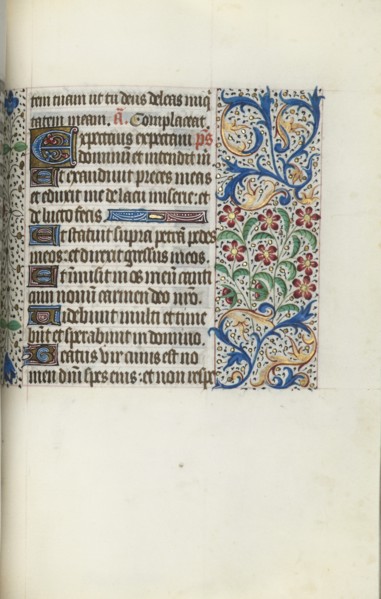 tem tuam ut tu deus deleas iniq
tatem meam. A. Complaceat.
Expectans expectaui ps
dominum et intendit m
Et exaudiuit preces meas
et eduxit me de lacu miserie: et
de luto fecis.
Et statuit supra petram pedes
meos: et direxit gressus meos.
Et inmisit in os meum canti
cum nouum carmen deo nro.
Videbunt multi et time
bunt et sperabunt in domino.
Beatus vir cuius est no
men dni spes eius: et non respe